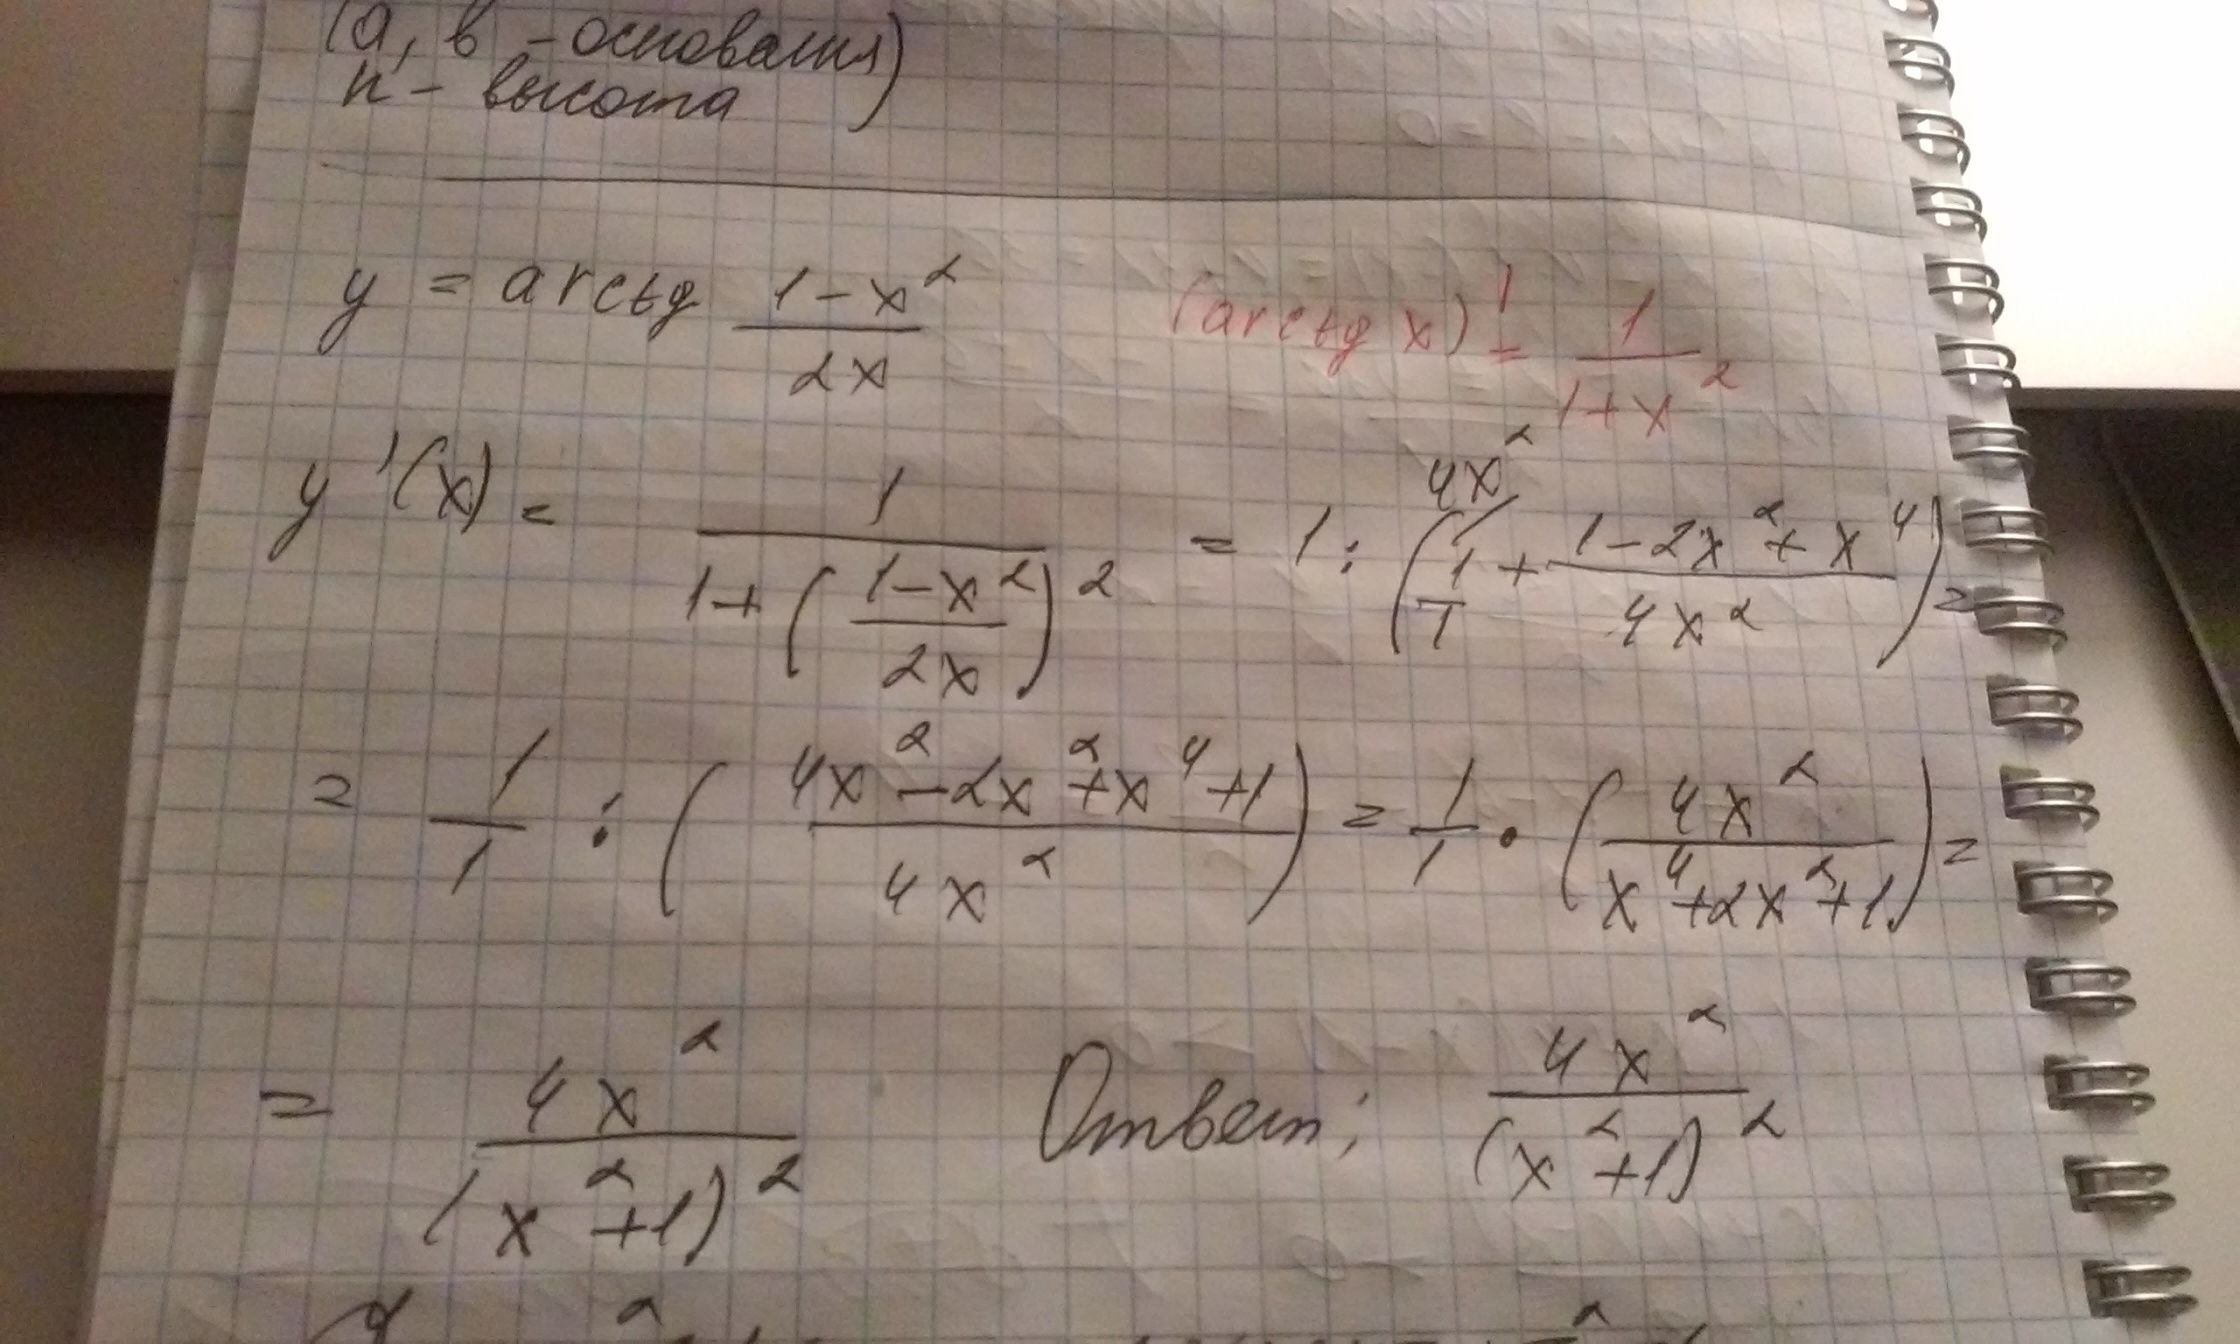 (а, в - основания)
h - высота
y = arctg (1-x²)/(2x)
(arctg x)' = 1/(1+x²)
y'(x) = 1/(1+((1-x²)/(2x))²) = 1 : (1/1 + (1-2x²+x⁴)/(4x²)) =
4x²
= 1/1 : ((4x²-2x²+x⁴+1)/(4x²)) = 1/1 · (4x²/(x⁴+2x²+1)) =
= 4x²/(x²+1)² Ответ: 4x²/(x²+1)²